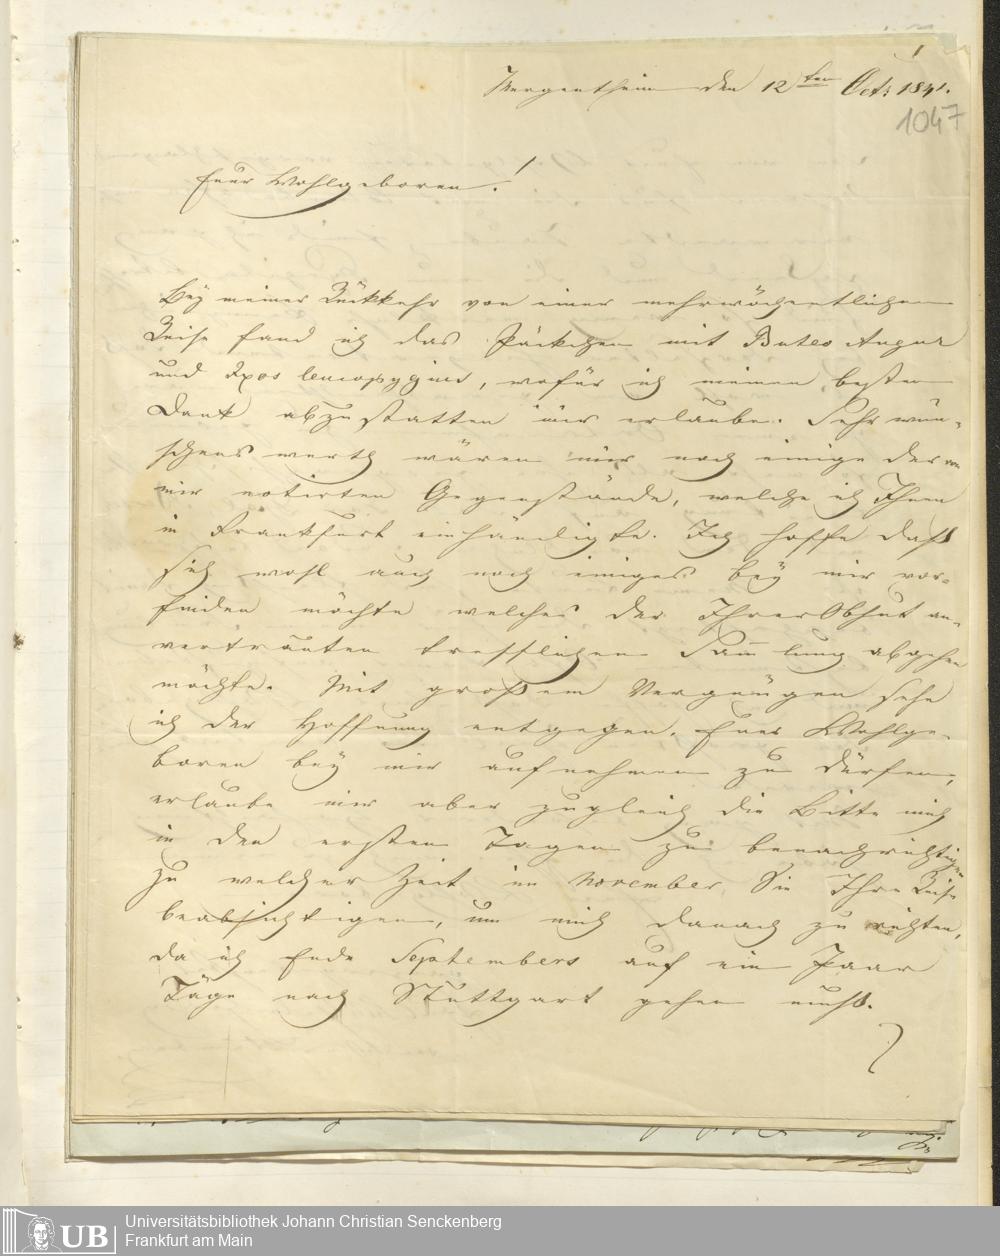 1
Mergentheim den 12ten Oct: 1841.
1047
Euer Wohlgeboren!
Bey meiner Rükkehr von einer mehrwöchentlichen
Reise fand ich das Päckchen mit Buteo Augur
und leucopygius, wofür ich meinen besten
Dank abzustatten mir erlaube. Sehr wün-
schenswerth wären mir noch einige der von
mir notirten Gegenstände, welche ich Ihnen
in Frankfurt einhändigte. Ich hoffe daß
sich wohl auch noch einiges bey mir vor-
finden möchte welches der Ihrer Obhut an-
vertrauten trefflichen Sammlung abgehen
möchte. Mit großem Vergnügen sehe
ich der Hoffnung entgegen, Euer Wohlge-
boren bey mir aufnehmen zu dürfen,
erlaube mir aber zugleich die Bitte mich
in den ersten Tagen zu benachrichtigen
zu welcher Zeit im November Sie Ihre Reise
beabsichtigen, um mich darnach zu richten,
da ich Ende Septembers auf ein Paar
Täge nach Stuttgart gehen muß.
UB
Universitätsbibliothek Johann Christian Senckenberg
Frankfurt am Main